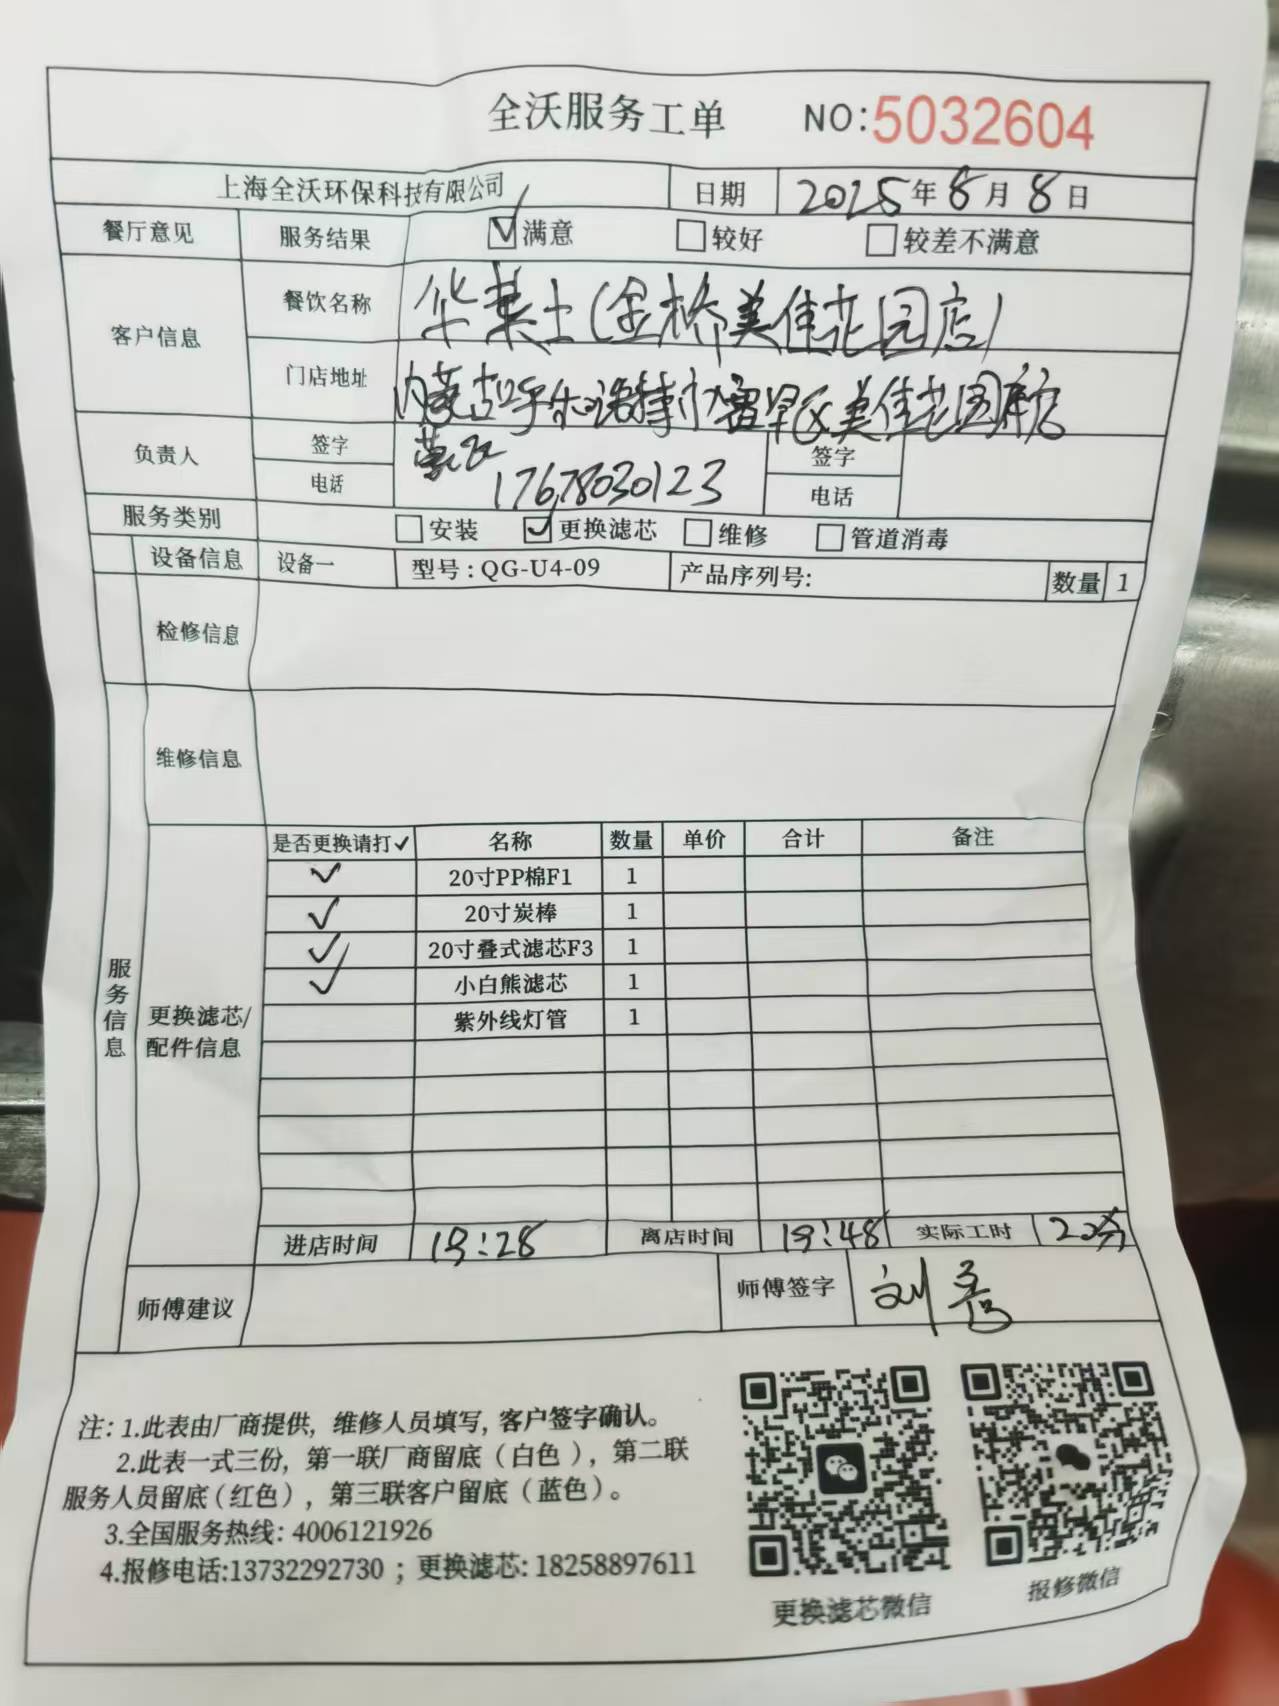 全沃服务工单 NO:5032604
上海全沃环保科技有限公司 日期 2025年8月8日
餐厅意见 服务结果 ☑满意 □较好 □较差不满意
客户信息 餐饮名称 华莱士(金桥美佳花园店)
门店地址 内蒙古呼和浩特市赛罕区美佳花园底店
负责人 签字 签字
电话 17678030123 电话
服务类别 □安装 ☑更换滤芯 □维修 □管道消毒
设备信息 设备一 型号:QG-U4-09 产品序列号: 数量 1
检修信息
维修信息
服务信息
更换滤芯/配件信息
是否更换请打✓ 名称 数量 单价 合计 备注
✓ 20寸PP棉F1 1
✓ 20寸炭棒 1
✓ 20寸叠式滤芯F3 1
✓ 小白熊滤芯 1
紫外线灯管 1
进店时间 19:28 离店时间 19:48 实际工时 20分
师傅建议 师傅签字 刘
注: 1.此表由厂商提供, 维修人员填写, 客户签字确认。
2.此表一式三份, 第一联厂商留底（白色）, 第二联
服务人员留底（红色）, 第三联客户留底（蓝色）。
3.全国服务热线: 4006121926
4.报修电话:13732292730 ; 更换滤芯: 18258897611
更换滤芯微信 报修微信